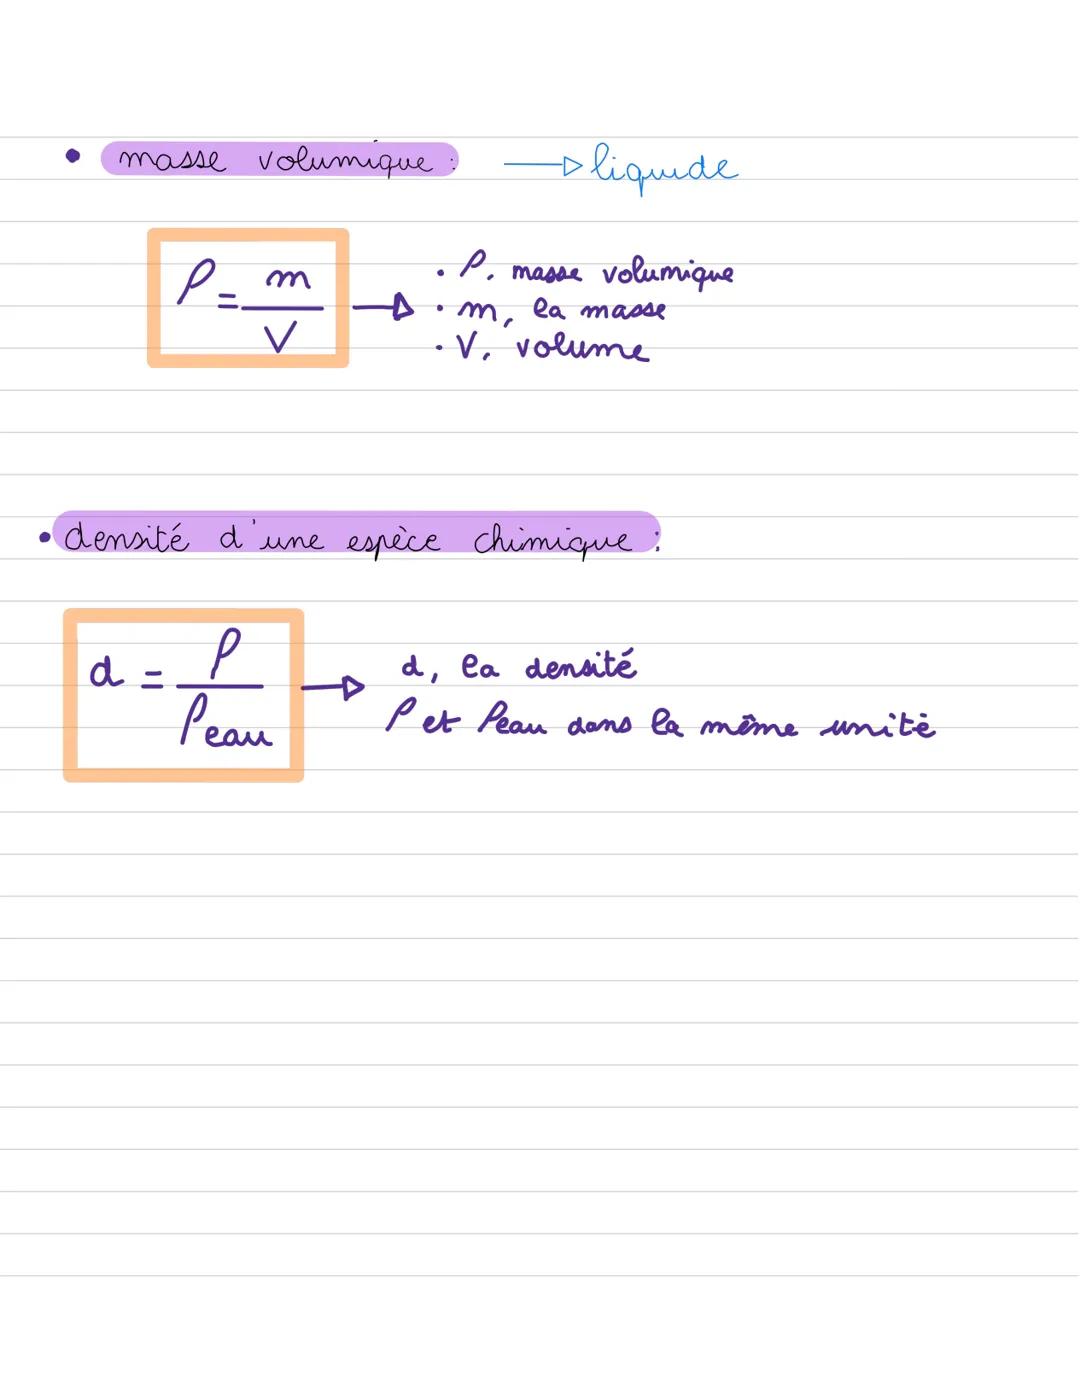 • masse volumique : → liquide
ρ = m / V → • ρ, masse volumique
• m, la masse
• V, volume
• densité d'une espèce chimique :
d = ρ / ρeau → d, la densité
ρ et ρeau dans la même unité